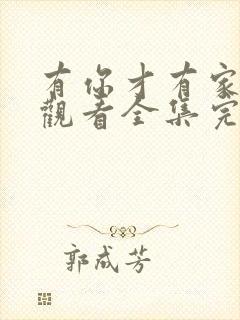 有你才有家
觀看全集完
郭成芳